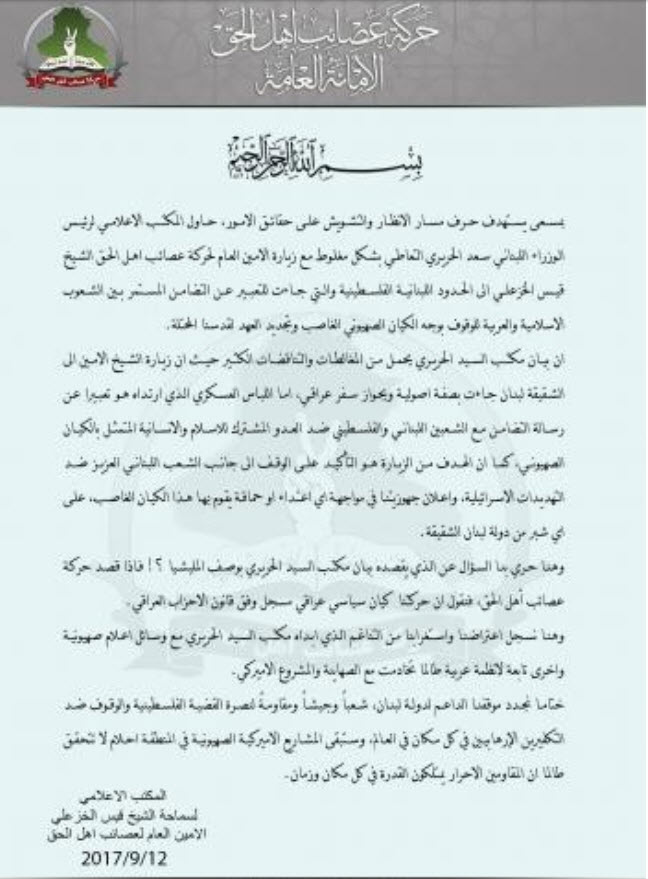 حركة عصائب اهل الحق
الامانة العامة
بسم الله الرحمن الرحيم
بمسعى يستهدف حرف مسار الانظار والتشويش على حقائق الامور، حاول المكتب الاعلامي لرئيس
الوزراء اللبناني سعد الحريري التعاطي بشكل مغلوط مع زيارة الامين العام لحركة عصائب اهل الحق الشيخ
قيس الخزعلي الى الحدود اللبنانية الفلسطينية والتي جاءت للتعبير عن التضامن المستمر بين الشعوب
الاسلامية والعربية للوقوف بوجه الكيان الصهيوني الغاصب وتجديد العهد لقدسنا المحتلة.
ان بيان مكتب السيد الحريري يحمل من المغالطات والتناقضات الكثير حيث ان زيارة الشيخ الامين الى
الشقيقة لبنان جاءت بصفة اصولية وبجواز سفر عراقي، اما اللباس العسكري الذي ارتداه هو تعبيرا عن
رسالة التضامن مع الشعبين اللبناني والفلسطيني ضد العدو المشترك للاسلام والانسانية المتمثل بالكيان
الصهيوني، كما ان الهدف من الزيارة هو التأكيد على الوقف الى جانب الشعب اللبناني العزيز ضد
التهديدات الاسرائيلية، واعلان جهوزيتنا في مواجهة اي اعتداء او حماقة يقوم بها هذا الكيان الغاصب، على
اي شبر من دولة لبنان الشقيقة.
وهنا حري بنا السؤال عن الذي يقصده بيان مكتب السيد الحريري بوصف المليشيا ؟! فاذا قصد حركة
عصائب أهل الحق، فنقول ان حركتنا كيان سياسي عراقي مسجل وفق قانون الاحزاب العراقي.
وهنا نسجل اعتراضنا واستغرابنا من التناغم الذي ابداه مكتب السيد الحريري مع وسائل اعلام صهيونية
واخرى تابعة لانظمة عربية طالما تخادمت مع الصهاينة والمشروع الاميركي.
ختاما نجدد موقفنا الداعم لدولة لبنان، شعباً وجيشاً ومقاومةً لنصرة القضية الفلسطينية والوقوف ضد
التكفيريين الإرهابيين في كل مكان في العالم، وستبقى المشاريع الاميركية الصهيونية في المنطقة احلام لا تتحقق
طالما ان المقاومين الاحرار يمتلكون القدرة في كل مكان وزمان.
المكتب الاعلامي
لسماحة الشيخ قيس الخزعلي
الامين العام لعصائب اهل الحق
2017/9/12